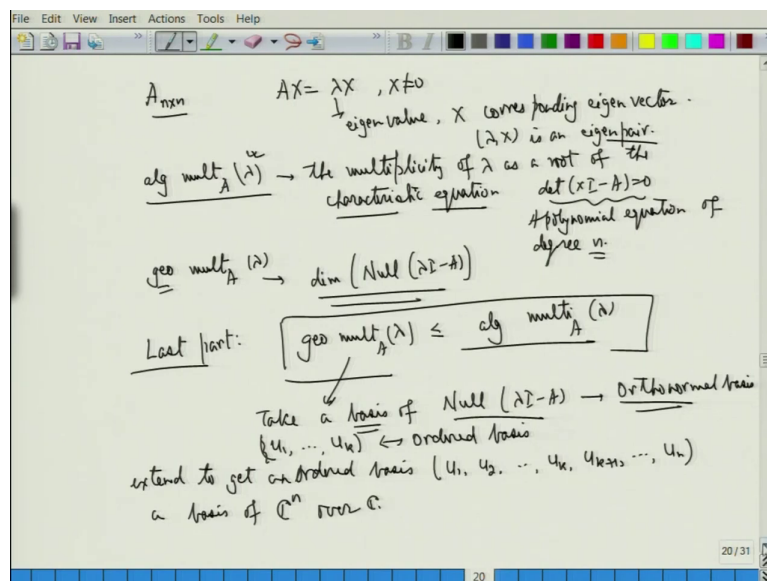 File Edit View Insert Actions Tools Help
A n×n AX = λX , X≠0
eigenvalue, X corresponding eigen vector.
(λ, X) is an eigenpair.
alg mult_A (λ) → the multiplicity of λ as a root of the
characteristic equation det(xI-A)=0
A polynomial equation of
degree n.
geo mult_A (λ) → dim (Null (λI-A))
Last part: geo mult_A (λ) ≤ alg multi_A (λ)
Take a basis of Null (λI-A) → Orthonormal basis
(u1, ..., uk) ↔ ordered basis
extend to get an ordered basis (u1, u2, .., uk, uk+1, .., un)
a basis of ℂ^n over ℂ.
20 / 31
20